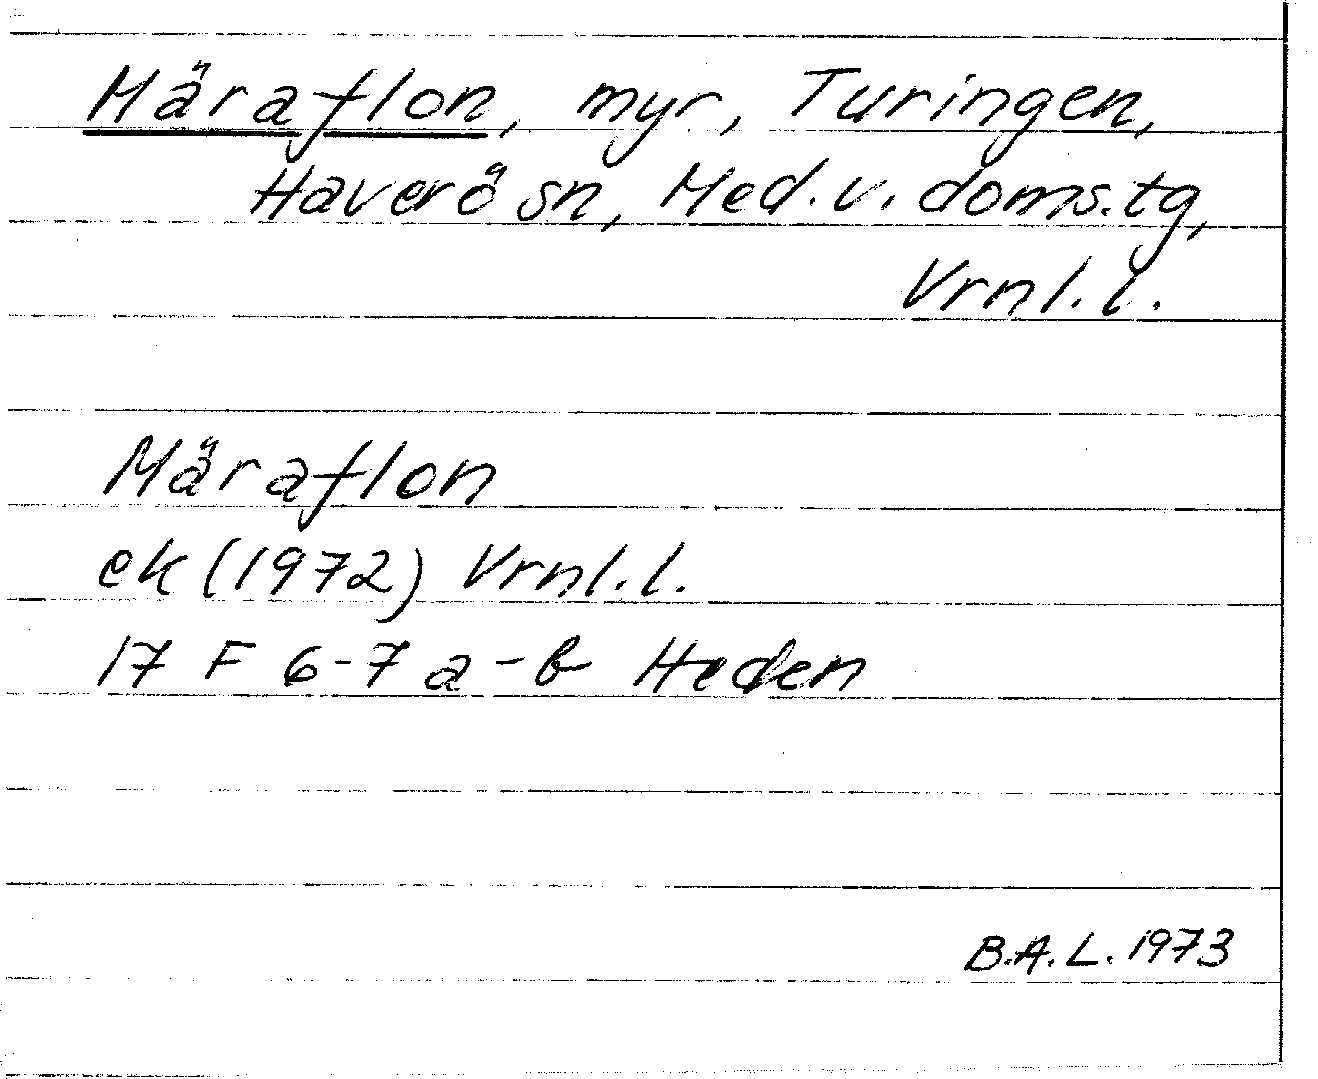 Häraflon, myr, Turingen,
Haverö sn, Med. v. doms. tg,
Vrnl. l.
Häraflon
ek (1972) Vrnl. l.
17 F 6-7 a-b Heden
B.A.L. 1973